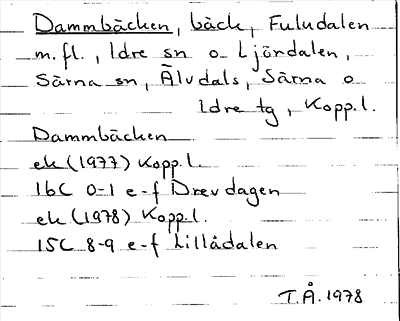 Dammbäcken, bäck, Fuludalen
m.fl., Idre sn o Ljördalen,
Särna sn, Älvdals, Särna o
Idre tg, Kopp.l.
Dammbäcken
ek (1977) Kopp.l.
16C 0-1 e-f Drevdagen
ek (1978) Kopp.l.
15C 8-9 e-f Lillådalen
T.Å. 1978